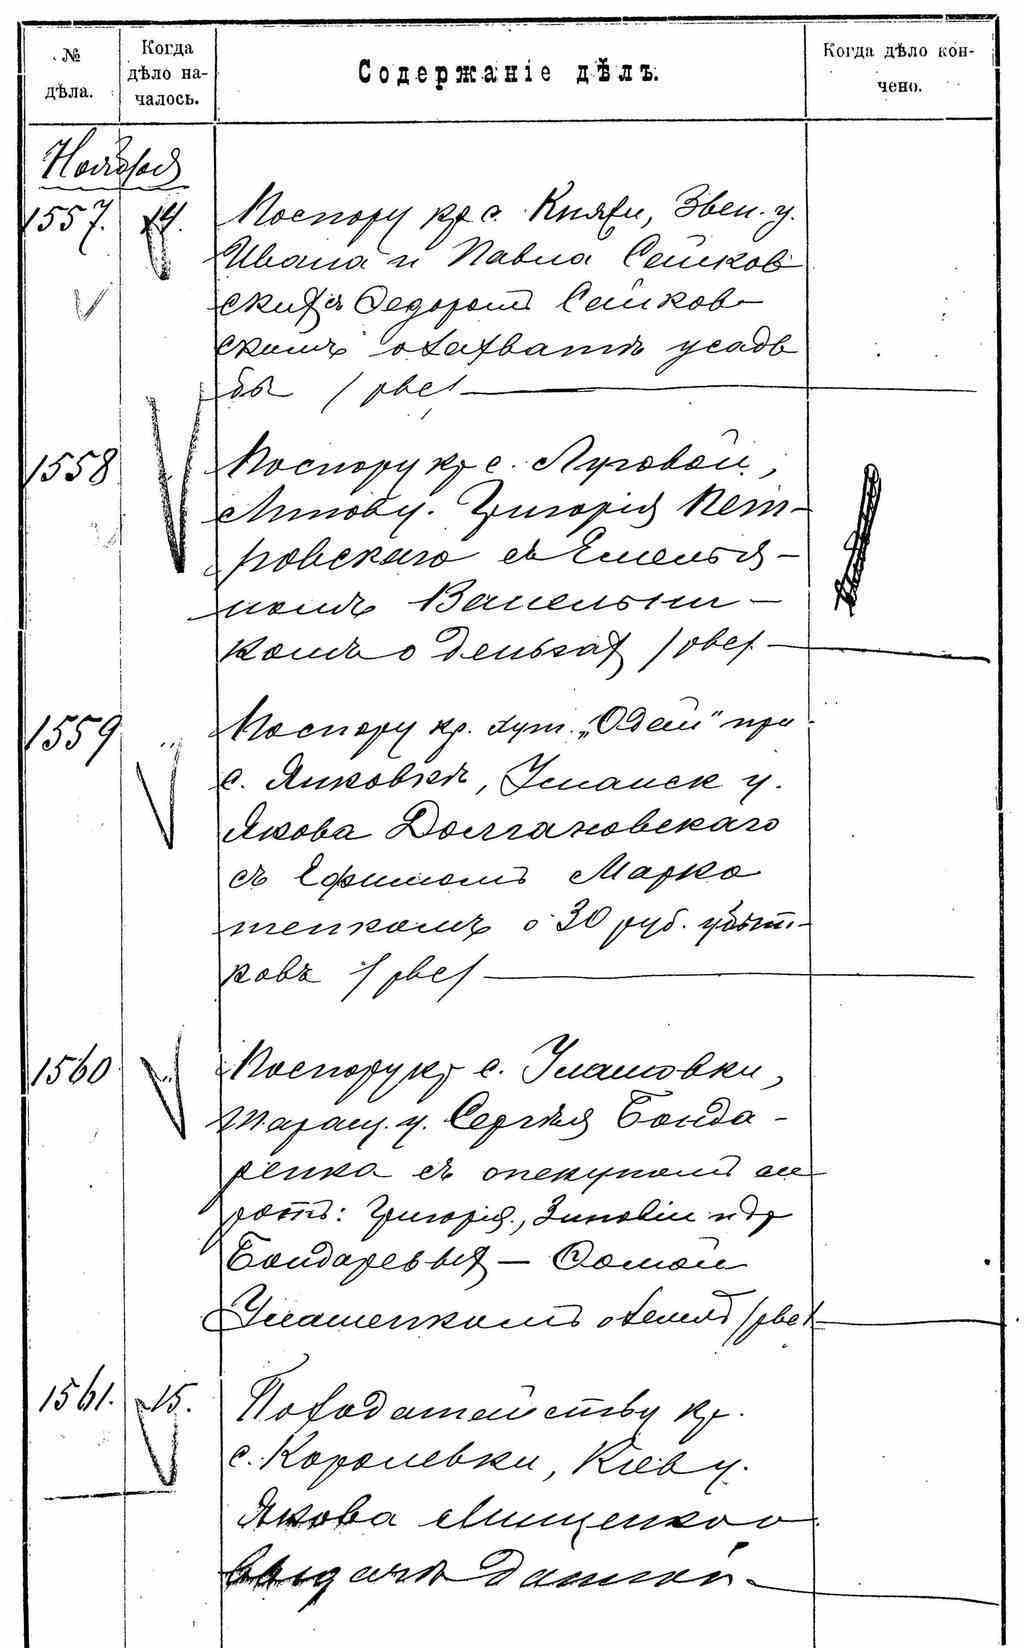 № дѣла.
Когда дѣло на-
чалось.
Содержаніе дѣлъ.
Когда дѣло кон-
чено.
Ноября
1557. 14. По спору кр. с. Княжи, Звен. у.
Ивана и Павла Сешков
скихъ съ Федоромъ Сешков-
скимъ о захватѣ усадь
бы /рвс/
1558 По спору кр. с. Луговой,
Липов у. Григорія Пет-
ровскаго съ Емелья-
номъ
комъ о деньгахъ /рвс/
1559 " По спору кр. хут. „Одай" при
с. Янковкѣ, Уманск у.
Якова Долгановскаго
съ Ефимомъ Марко
тенкомъ о 30 руб. убыт-
ковъ /рвс/
1560 " По спору кр с. Улашовки,
Таращ. у. Сергѣя Бонда-
ренка съ опекуномъ си
ротъ: Григорія, Зиновіи и др
Бондаревыхъ — Фомой
Улашенкомъ о землѣ /рвс/
1561. 15. По ходатайству кр.
с. Королевки, Кіев у.
Якова Лищенко о
выдачѣ данной.